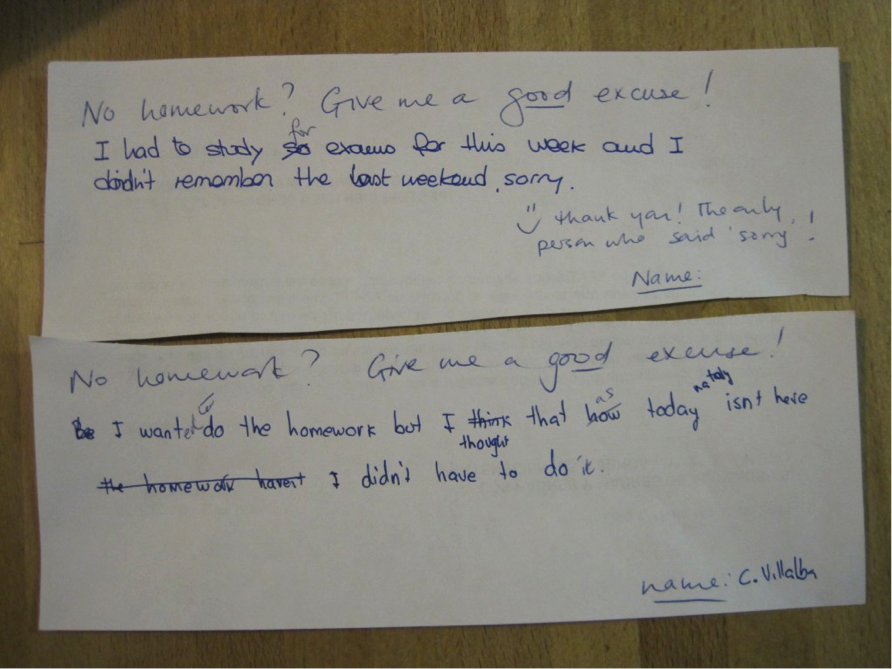 No homework? Give me a good excuse!
for
I had to study so exams for this week and I
didn't remember the last weekend, sorry.
Thank you! The only
person who said 'sorry'!
Name:
No homework? Give me a good excuse!
to as nataly
I wanted do the homework but I think that how today isn't here
thought
the homework haven't I didn't have to do it.
name: C. Villalba